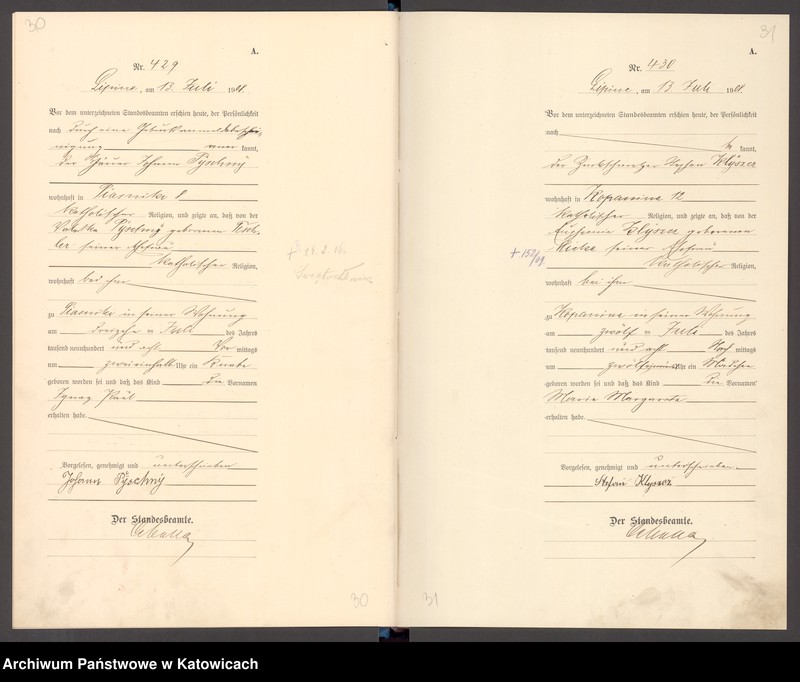 30
A.
Nr. 429
Lipine, am 13 Juli 1908.
Vor dem unterzeichneten Standesbeamten erschien heute, der Persönlichkeit
nach durch eine Geburtsanmeldebeschei-
nigung kannt,
der Häuer Johann Pyschny
wohnhaft in Piasniki 8
katholischer Religion, und zeigte an, daß von der
Pyschny geborenen
seiner Ehefrau
katholischer Religion,
wohnhaft bei ihm
zu Piasniki in seiner Wohnung
am Juli des Jahres
tausend neunhundert und acht Vor mittags
um Uhr ein Knabe
geboren worden sei und daß das Kind die Vornamen
Ignaz Paul
erhalten habe.
Vorgelesen, genehmigt und unterschrieben
Johann Pyschny
Der Standesbeamte.
30
31
A.
Nr. 430
Lipine, am 13 Juli 1908.
Vor dem unterzeichneten Standesbeamten erschien heute, der Persönlichkeit
nach be kannt,
der Zinkschmelzer Stephan Klyszcz
wohnhaft in Kopanina 12
katholischer Religion, und zeigte an, daß von der
Euphemie Klyszcz geborenen
seiner Ehefrau
+ 152/09
katholischer Religion,
wohnhaft bei ihm
zu Kopanina in seiner Wohnung
am zwölf n Juli des Jahres
tausend neunhundert und acht Nach mittags
um Uhr ein Mädchen
geboren worden sei und daß das Kind die Vornamen
Maria Margarete
erhalten habe.
Vorgelesen, genehmigt und unterschrieben
Stefan Klyszcz
Der Standesbeamte.
31
Archiwum Państwowe w Katowicach